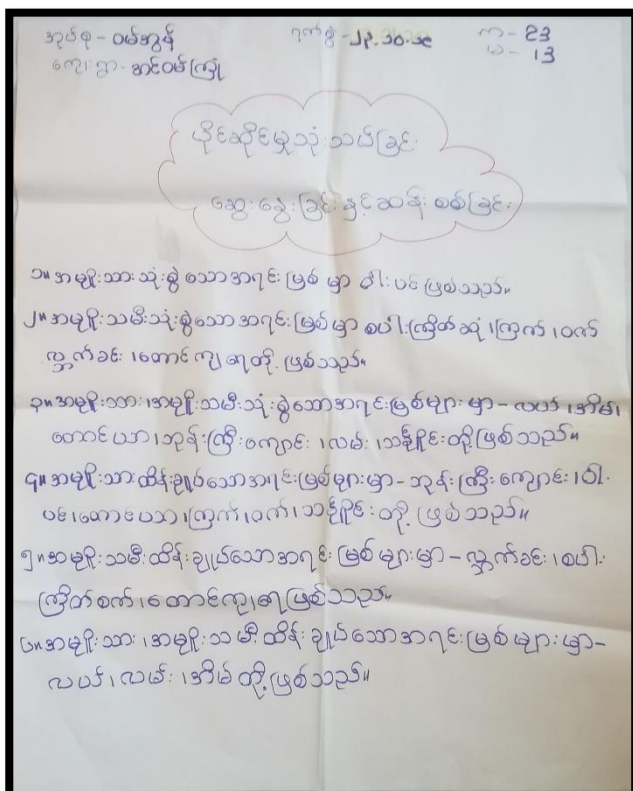 အုပ်စု - ဝမ်အွန် ရက်စွဲ - ၂၃.၁၀.၁၉ က - 23
ကျေးရွာ - အင်ဝမ်ကြုံ မ - 13
ပိုင်ဆိုင်မှုသုံးသပ်ခြင်း
ဆွေးနွေးခြင်းနှင့်ဆန်းစစ်ခြင်း
၁။ အမျိုးသားသုံးစွဲသောအရင်းမြစ်မှာ ဝါးပင်ဖြစ်သည်။
၂။ အမျိုးသမီးသုံးစွဲသောအရင်းမြစ်မှာ စပါးကြိတ်ဆုံ၊ ကြက်၊ ဝက်
လ္ဘက်ခင်း၊ တောင်ကျရေတို့ ဖြစ်သည်။
၃။ အမျိုးသား၊ အမျိုးသမီးသုံးစွဲသောအရင်းမြစ်များမှာ - လယ်၊ အိမ်၊
တောင်ယာ၊ ဘုန်းကြီးကျောင်း၊ လမ်း၊ သင်္ချိုင်းတို့ဖြစ်သည်။
၄။ အမျိုးသားထိန်းချုပ်သောအရင်းမြစ်များမှာ - ဘုန်းကြီးကျောင်း၊ ဝါး
ပင်၊ တောင်ယာ၊ ကြက်၊ ဝက်၊ သင်္ချိုင်းတို့ ဖြစ်သည်။
၅။ အမျိုးသမီးထိန်းချုပ်သောအရင်းမြစ်များမှာ - လ္ဘက်ခင်း၊ စပါး
ကြိတ်စက်၊ တောင်ကျရေဖြစ်သည်။
၆။ အမျိုးသား၊ အမျိုးသမီးထိန်းချုပ်သောအရင်းမြစ်များမှာ -
လယ်၊ လမ်း၊ အိမ်တို့ဖြစ်သည်။